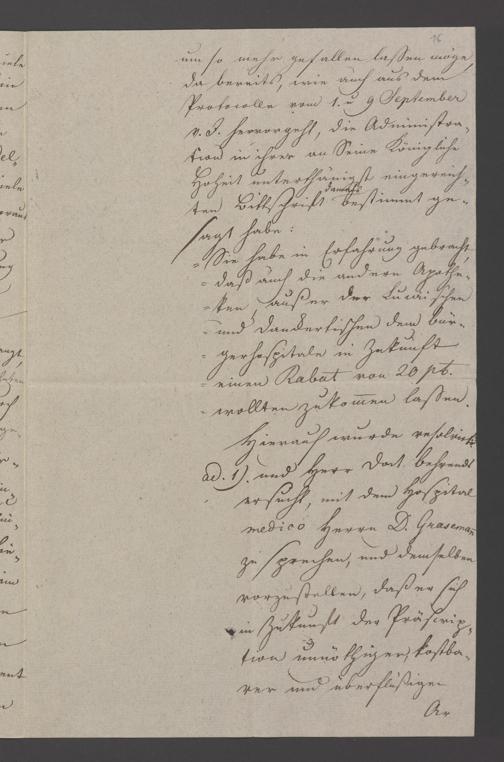 16
um so mehr gefallen lassen möge,
da bereits, wie auch aus dem
Protocolle vom 1. u 9 September
v. J. hervorgeht, die Administra-
tion in ihrer an Seine Königliche
Hoheit unterthänigst eingereich-
damals
ten Bittschrift bestimmt ge-
sagt habe:
"Sie habe in Erfahrung gebracht,
"daß auch die andern Apothe-
"ken, außer der
"und dem Bür-
"gerhospitale in Zukunft
"einen Rabat von 20 pC.
"wollten zukom̅en lassen.
Hierauf wurde resolvirt
ad. 1). und Herr Doct. Behrends
ersucht, mit dem Hospital
medico Herrn D. Grasemañ
zu sprechen, und demselben
vorzustellen, daß er sich
in Zukunft der Präscrip-
tion unnöthiger, kostba-
rer und überflüßiger
Ar